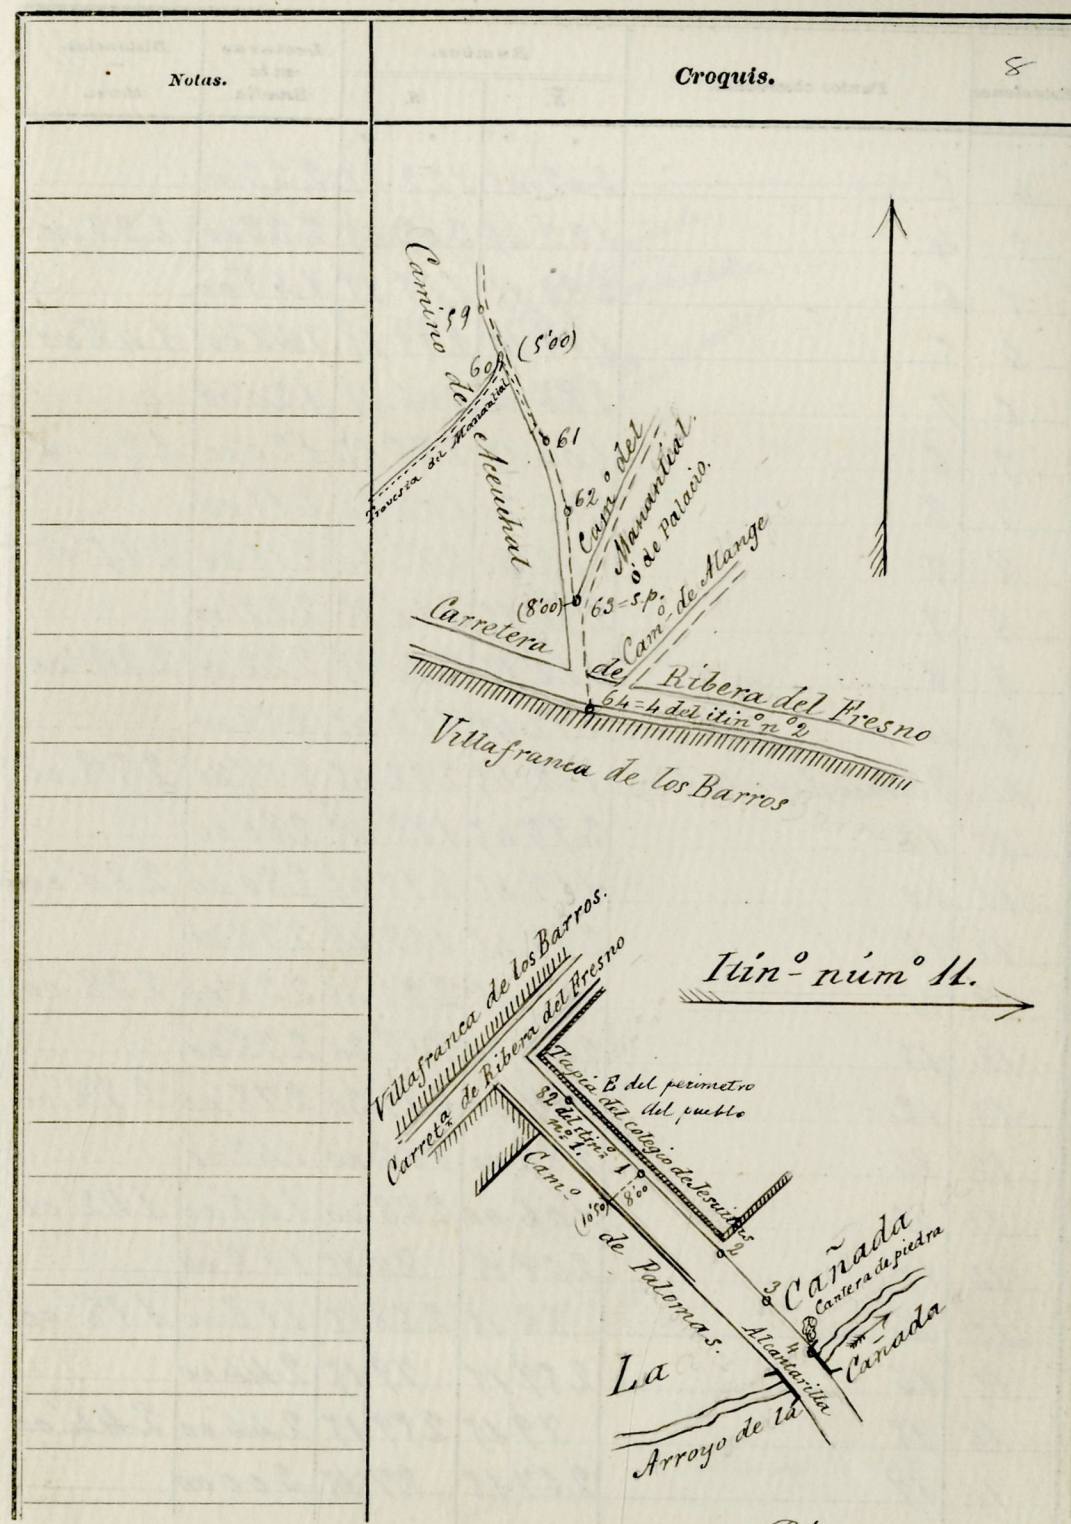 Notas.
Croquis.
8
Camino de Aceuchal
59
60
(5'00)
Travesia del Manantial
61
62
Cam.º del
Manantial
ó de Palacio.
(8'00)
63=s.p.
Cam.º de Alange
Carretera de Ribera del Fresno
64=4 del itin.º nº 2
Villafranca de los Barros
Itin.º núm.º 11.
Villafranca de los Barros.
Carret.ª de Ribera del Fresno
Tapia del colegio de Jesuitas
E del perimetro
del pueblo
82 del itin.º
nº 1.
1
8'00
(10'50)
Cam.º de Palomas.
2
3
Cañada
Cantera de piedra
4
Alcantarilla
La Cañada
Arroyo de la